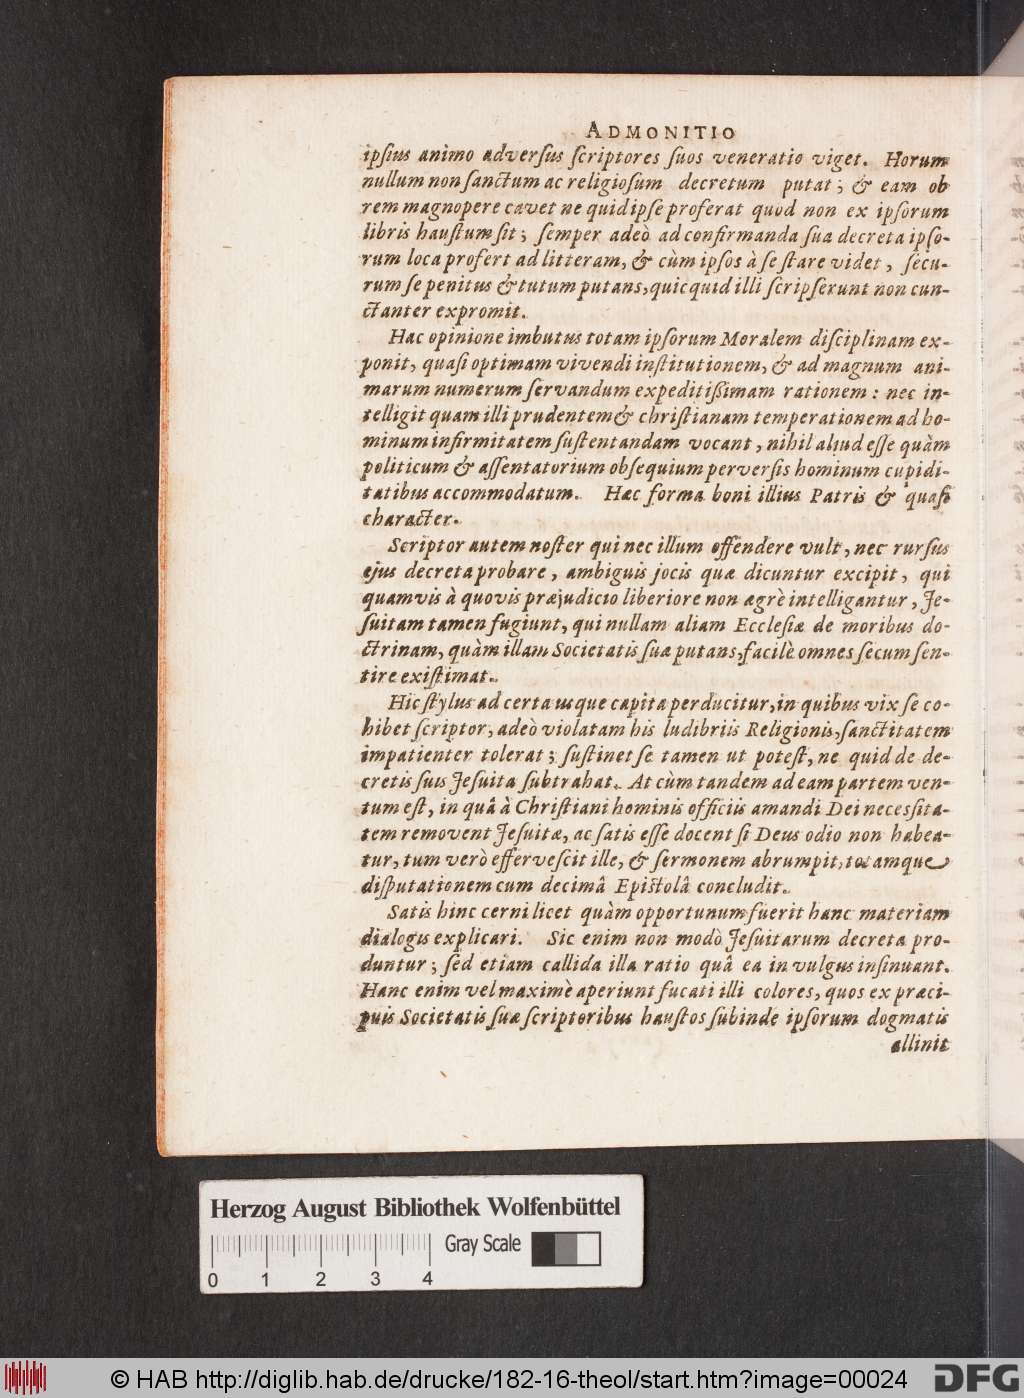 ADMONITIO
ipſius animo adverſus ſcriptores ſuos veneratio viget. Horum
nullum non ſanctum ac religioſum decretum putat; & eam ob
rem magnopere cavet ne quid ipſe proferat quod non ex ipſorum
libris hauſtum ſit; ſemper adeò ad confirmanda ſua decreta ipſo-
rum loca profert ad litteram, & cùm ipſos à ſe ſtare videt, ſecu-
rum ſe penitus & tutum putans, quicquid illi ſcripſerunt non cun-
ctanter expromit.
Hac opinione imbutus totam ipſorum Moralem diſciplinam ex-
ponit, quaſi optimam vivendi inſtitutionem, & ad magnum ani-
marum numerum ſervandum expeditiſſimam rationem: nec in-
telligit quam illi prudentem & chriſtianam temperationem ad ho-
minum infirmitatem ſuſtentandam vocant, nihil aliud eſſe quàm
politicum & aſſentatorium obſequium perverſis hominum cupidi-
tatibus accommodatum. Hæc forma boni illius Patris & quaſi
character.
Scriptor autem noſter qui nec illum offendere vult, nec rurſus
ejus decreta probare, ambiguis jocis quæ dicuntur excipit, qui
quamvis à quovis præjudicio liberiore non ægrè intelligantur, Je-
ſuitam tamen fugiunt, qui nullam aliam Eccleſiæ de moribus do-
ctrinam, quàm illam Societatis ſuæ putans, facilè omnes ſecum ſen-
tire exiſtimat.
Hic ſtylus ad certa uſque capita perducitur, in quibus vix ſe co-
hibet ſcriptor, adeò violatam his ludibriis Religionis, ſanctitatem
impatienter tolerat; ſuſtinet ſe tamen ut poteſt, ne quid de de-
cretis ſuis Jeſuita ſubtrahat. At cùm tandem ad eam partem ven-
tum eſt, in quâ à Chriſtiani hominis officiis amandi Dei neceſſita-
tem removent Jeſuitæ, ac ſatis eſſe docent ſi Deus odio non habea-
tur, tum verò effervescit ille, & ſermonem abrumpit, totamque
diſputationem cum decimâ Epiſtolâ concludit.
Satis hinc cerni licet quàm opportunum fuerit hanc materiam
dialogis explicari. Sic enim non modò Jeſuitarum decreta pro-
duntur; ſed etiam callida illa ratio quâ ea in vulgus inſinuant.
Hanc enim vel maximè aperiunt fucati illi colores, quos ex præci-
puis Societatis ſuæ ſcriptoribus hauſtos ſubinde ipſorum dogmatis
allinit
Herzog August Bibliothek Wolfenbüttel
Gray Scale
0 1 2 3 4
© HAB http://diglib.hab.de/drucke/182-16-theol/start.htm?image=00024
DFG